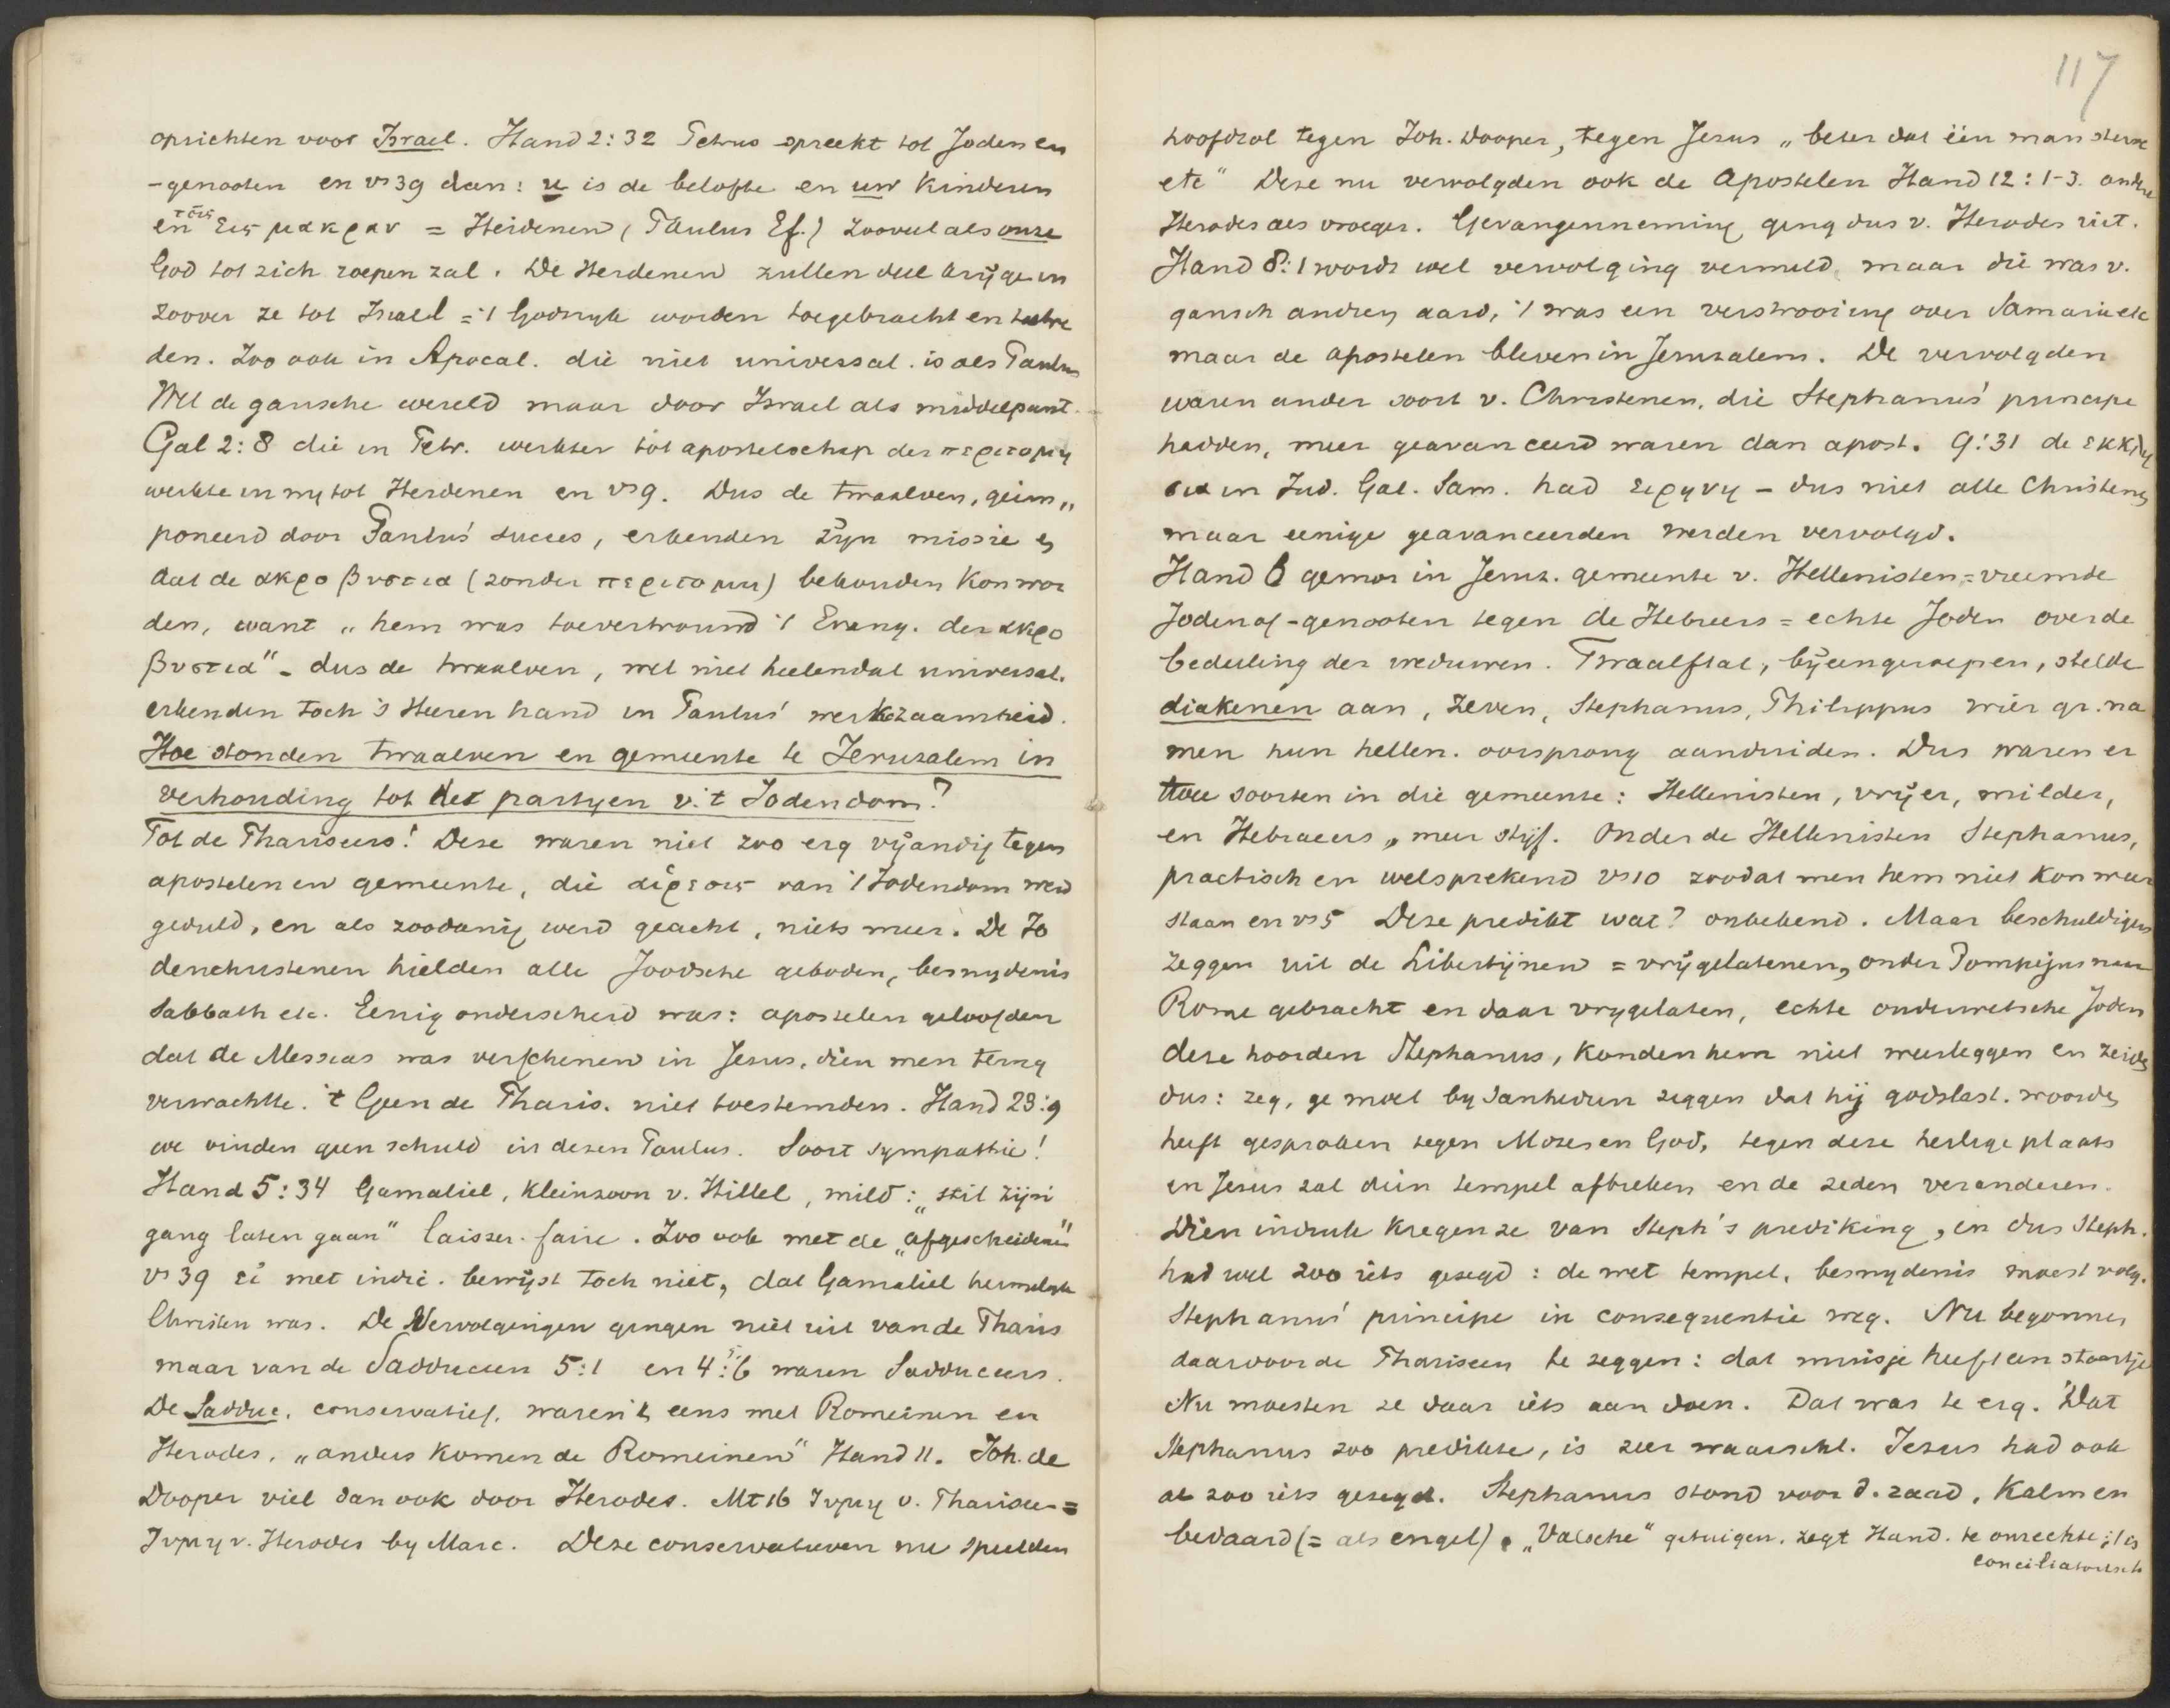 oprichten voor Israel. Hand 2:32 Petrus spreekt tot Joden en
-genooten en vs 39 dan: u is de belofte en uw kinderen
en τοις εις μακραν = Heidenen (Paulus Ef.) zooveel als onze
God tot zich roepen zal. De Heidenen zullen deel krijgen in
zoover ze tot Israel = 't Godsryk worden toegebracht en
den. Zoo ook in Apocal. die niet universal. is als Paulus
Wel de gansche wereld maar door Israel als middelpunt.
Gal 2:8 die in Petr. werkter tot apostelschap der περιτομη
werkte in my tot Heidenen en vs 9. Dus de twaalven, geim„
poneerd door Paulus' succes, erkenden zijn missie en
dat de ακρο βυστια (zonder περιτομη) behouden kon wor
den, want „hem was toevertrouwd 't Evang. der ακρο
βυστια" - dus de twaalven, wel niet heelendal universal.
erkenden toch 's Heeren hand in Paulus' werkzaamheid.
Hoe stonden twaalven en gemeente te Jeruzalem in
verhouding tot de partyen v. 't Jodendom?
Tot de Phariseers! Deze waren niet zoo erg vijandig tegen
apostelen en gemeente, die αίρεσις van 't Jodendom werd
geduld, en als zoodanig werd geacht, niets meer. De Jo
denchristenen hielden alle Joodsche geboden, besnydenis
Sabbath etc. Eenig onderscheid was: apostelen geloofden
dat de Messias was verschenen in Jesus, dien men terug
verwachtte. 't Geen de Pharis. niet toestemden. Hand 23:9
we vinden geen schuld in dezen Paulus. Soort sympathie!
Hand 5:34 Gamaliel, kleinzoon v. Hillel, mild: „stil zijn
gang laten gaan" laisser-faire. Zoo ook met de „afgescheidenen"
vs 39 εἰ met indic. bewijst toch niet, dat Gamaliel heimelyk
Christen was. De Vervolgingen gingen niet uit van de Pharis
maar van de Sadduceen 5:1 en 4:6 waren Sadduceers.
De Sadduc. conservatief, waren 't eens met Romeinen en
Herodes. „anders komen de Romeinen" Hand 11. Joh. de
Dooper viel dan ook door Herodes. Mt 16 ζυμη v. Phariseer =
ζυμη v. Herodes by Marc. Deze conservatieven nu speelden
117
hoofdrol tegen Joh. Dooper, tegen Jesus „beter dat één man sterve
etc" Deze nu vervolgden ook de Apostelen Hand 12:1-3. andre
Herodes als vroeger. Gevangenneming ging dus v. Herodes uit.
Hand 8:1 wordt wel vervolging vermeld, maar die was v.
gansch andren aard, 't was een verstrooiing over Samaria etc
maar de apostelen bleven in Jeruzalem. De vervolgden
waren ander soort v. Christenen, die Stephanus' principe
hadden, meer geavanceerd waren dan apost. 9:31 de εκκλη
σια in Jud. Gal. Sam. had ειρηνη - dus niet alle Christenen
maar eenige geavanceerden werden vervolgd.
Hand 6 gemor in Jeruz. gemeente v. Hellenisten = vreemde
Joden of -genooten tegen de Hebreers = echte Joden over de
bedeeling der weduwen. Twaalftal, bijeengeroepen, stelde
diakenen aan, zeven, Stephanus, Philippus wier gr. na
men hun hellen. oorsprong aanduiden. Dus waren er
twee soorten in die gemeente: Hellenisten, vrijer, milder,
en Hebraeers, meer stijf. Onder de Hellenisten Stephanus,
practisch en welsprekend vs 10 zoodat men hem niet kon weer
staan en vs 5 Deze predikt wat? onbekend. Maar beschuldigers
zeggen uit de Libertijnen = vrijgelatenen, onder Pompejus naar
Rome gebracht en daar vrygelaten, echte ouderwetsche Joden
deze hoorden Stephanus, konden hem niet weerleggen en zeiden
dus: zeg, ge moet by Sanhedrin zeggen dat hij godslast. woorden
heeft gesproken tegen Mozes en God, tegen deze heilige plaats
en Jesus zal dien tempel afbreken en de zeden veranderen.
Dien indruk kregen ze van Steph's prediking, en dus Steph.
had wel zoo iets gezegd: de wet tempel, besnydenis moest volg.
Stephanus' principe in consequentie weg. Nu begonnen
daarvoor de Phariseen te zeggen: dat muisje heeft een staartje
Nu moesten ze daar iets aan doen. Dat was te erg. Dat
Stephanus zoo predikte, is zeer waarschl. Jezus had ook
al zoo iets gezegd. Stephanus stond voor d. raad, kalm en
bedaard (= als engel). „Valsche" getuigen, zegt Hand. te onrechte; 't is
conciliatorisch